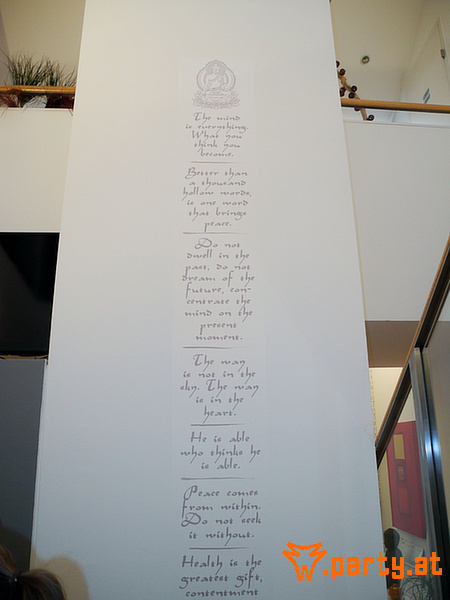 The mind
is everything.
What you
think you
become.
Better than
a thousand
hollow words,
is one word
that brings
peace.
Do not
dwell in the
past, do not
dream of the
future, con-
centrate the
mind on the
present
moment.
The way
is not in the
sky. The way
is in the
heart.
He is able
who thinks he
is able.
Peace comes
from within.
Do not seek
it without.
Health is the
greatest gift,
contentment
w.party.at